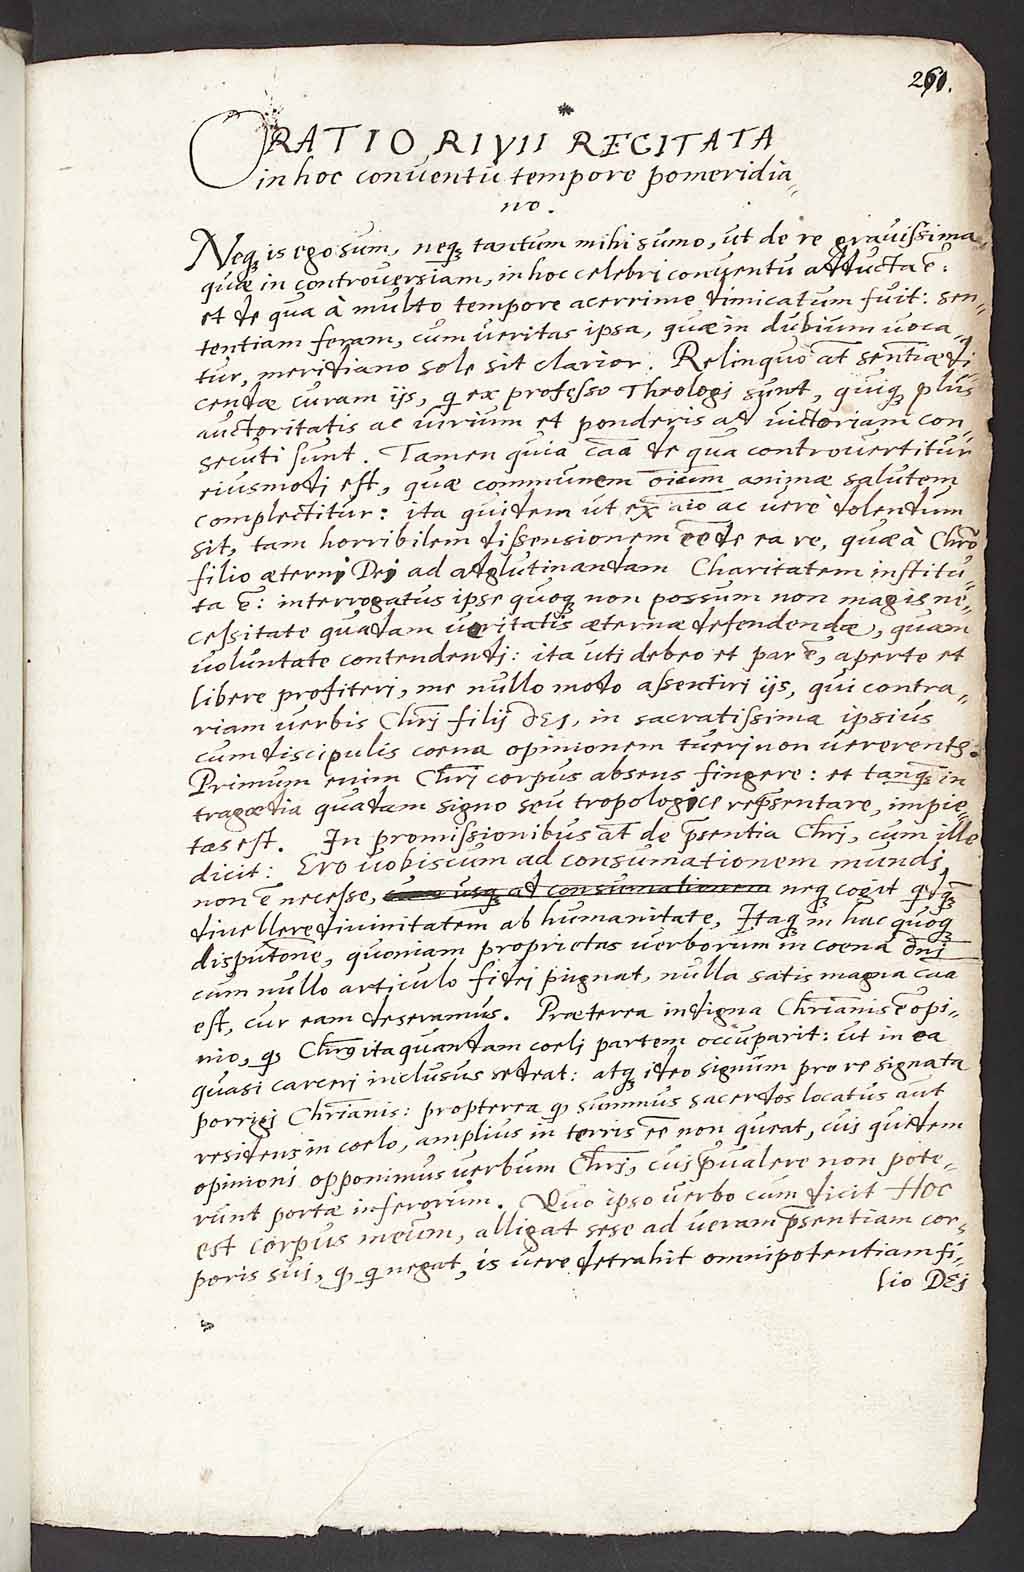 261.
ORATIO RIVII RECITATA
in hoc conventu tempore pomeridia„
no.
Neq́ꝫ is ego sum, neqꝫ tantum mihi sumo, ut de re gravissima„
quæ in controversiam, in hoc celebri conventu adducta ē:
et de qua à multo tempore acerrime dimicatum fuit: sen„
tentiam feram, cum veritas ipsa, quæ in dubium voca„
tur, meridiano sole sit clarior. Relinquo āt sentīæ di
cendæ curam ijs, q̄ ex professo Theologi sunt, quiqꝫ plus
auctoritatis ac virium et ponderis ad victoriam con„
secuti sunt. Tamen quia caā de qua controvertitur
eiusmodi est, quæ communem oīum animæ salutem
complectitur: ita quidem ut ex aīo ac verè dolendum
sit, tam horribilem dissensionem eē de ea re, quæ à Chrō
filio æterni Dei ad adglutinandam Charitatem institu„
ta ē: interrogatus ipse quoqꝫ non possum non magis ne„
cessitate quadam veritatis æternæ defendendæ, quam
voluntate contendendi: ita uti debeo et par ē, aperte et
libere profiteri, me nullo modo assentiri ijs, qui contra„
riam verbis Chrī filij DEI, in sacratissima ipsius
cum discipulis coena opinionem tueri non vererentꝶ.
Primum enim Chrī corpus absens fingere: et tanq̄ꝫ in
tragœdia quadam signo seu tropologice rep̄sentare, impie„
tas est. In promissionibus āt de p̄sentia Chrī, cum ille
dicit: Ero vobiscum ad consumationem mundi,
non ē necesse, cum usqꝫ ad consumationem neqꝫ cogit q̄dq̄ꝫ
divellere divinitatem ab humanitate, Itaqꝫ in hac quoqꝫ
disputōne, quoniam proprietas verborum in coena dnī
cum nullo articulo fidei pugnat, nulla satis magna caā
est, cur eam deseramus. Præterea indigna Chrīanis ē opi„
nio, qꝫ Chrūs ita quandam coeli partem occuparit: ut in ea
quasi carceri inclusus sedeat: atqꝫ ideo signum pro re signata
porrigi Chrīanis: propterea qꝫ summus sacerdos locatus aut
residens in coelo, amplius in terris eē non queat, cui quidem
opinioni opponimus verbum Chrī, cui p̄valere non pote„
runt portæ inferorum. Quo ipso verbo cum dicit Hoc
est corpus meum, alligat sese ad veram p̄sentiam cor„
poris sui, qꝫ q̄ negat, is vere detrahit omnipotentiam fi„
lio DEI